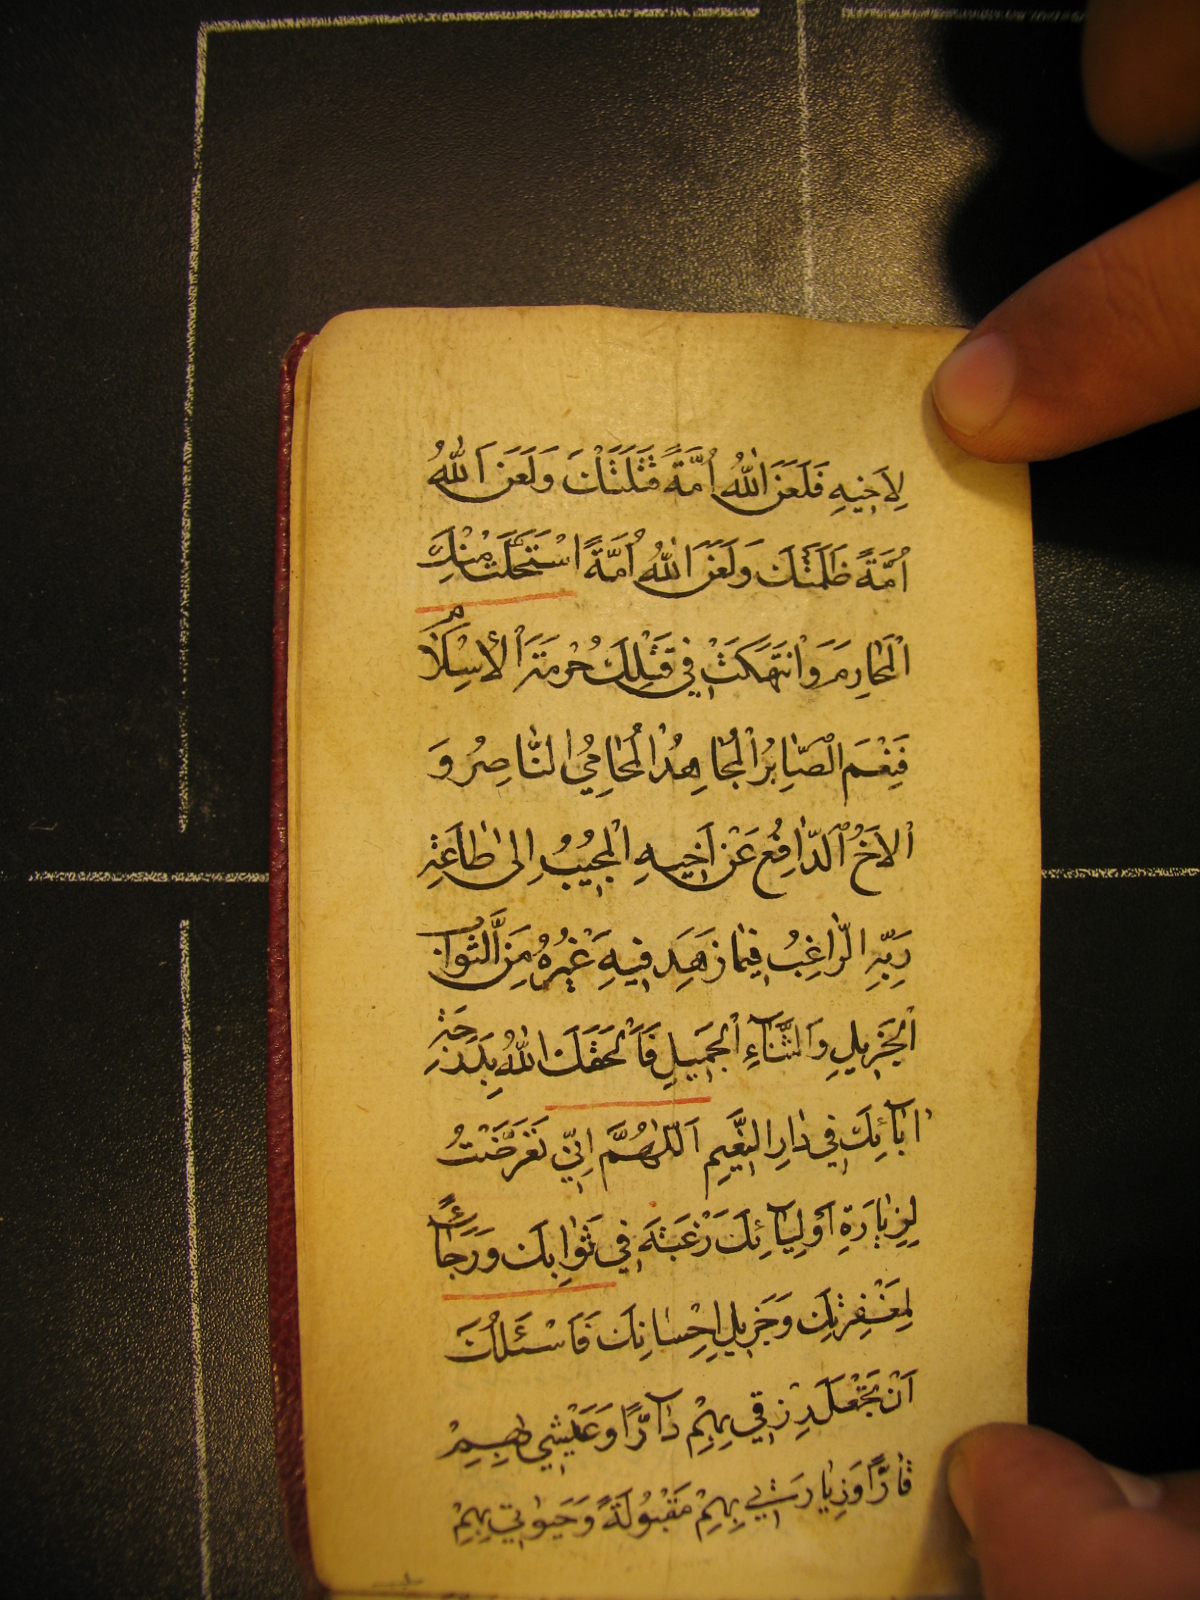 لِاَخیهِ فَلَعَنَ اللّٰهُ اُمَّةً قَتَلَتْكَ وَلَعَنَ اللّٰهُ
اُمَّةً ظَلَمَتْكَ وَلَعَنَ اللّٰهُ اُمَّةً اسْتَحَلَّتْ مِنْكَ
الْمَحارِمَ وَانْتَهَكَتْ فِي قَتْلِكَ حُرْمَةَ الْأِسْلامِ
فَنِعْمَ الصّابِرُ الْمُجاهِدُ الْمُحامِيُ النّاصِرُ وَ
الْاَخُ الدّافِعُ عَنْ اَخیهِ الْمُجیبُ اِلىٰ طاعَةِ
رَبِّهِ الرّاغِبُ فیما زَهِدَ فیهِ غَیْرُهُ مِنَ الثَّوابِ
الْجَزیلِ وَالثَّنآءِ الْجَمیلِ فَاَلْحَقَكَ اللّٰهُ بِدَرَجَةِ
اٰبآئِكَ فِي دارِ النَّعیمِ اَللّٰهُمَّ اِنّي تَعَرَّضْتُ
لِزِیارَةِ اَوْلِیآئِكَ رَغْبَةً فِي ثَوابِكَ وَرَجآءً
لِمَغْفِرَتِكَ وَجَزیلِ اِحْسانِكَ فَاَسْئَلُكَ
اَنْ تَجْعَلَ رِزْقي بِهِمْ دآرّاً وَعَیْشي بِهِمْ
قآرّاً وَزِیارَتي بِهِمْ مَقْبُولَةً وَحَیٰوتي بِهِمْ